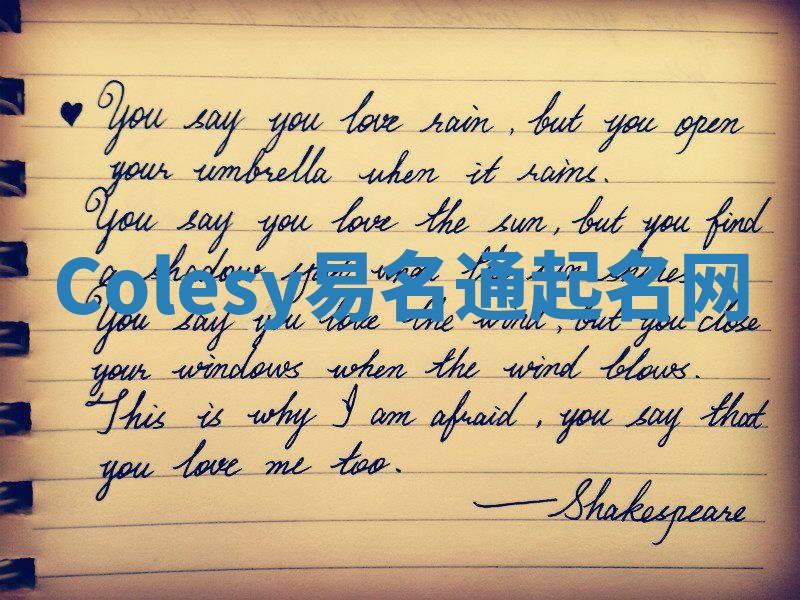 ♥ You say you love rain, but you open
your umbrella when it rains.
You say you love the sun, but you find
a shadow spot when the sun shines.
Colesy易名通起名网
You say you love the wind, but you close
your windows when the wind blows.
This is why I am afraid, you say that
you love me too.
— Shakespeare